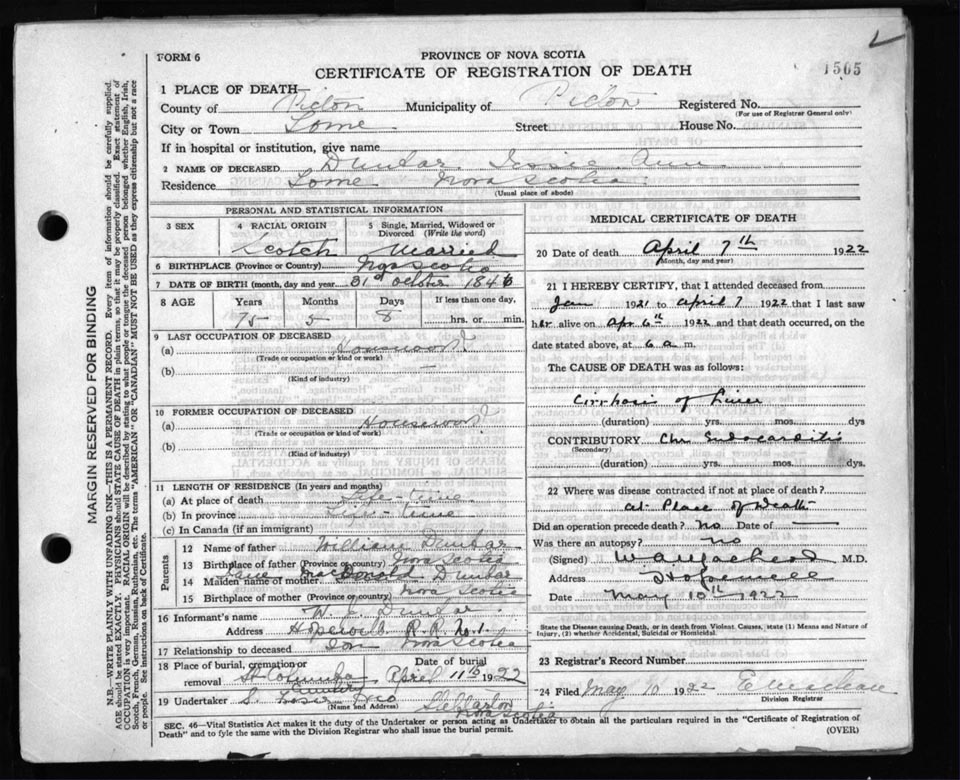 FORM 6
PROVINCE OF NOVA SCOTIA
CERTIFICATE OF REGISTRATION OF DEATH
1505
1 PLACE OF DEATH
County of Pictou Municipality of Pictou Registered No.
(For use of Registrar General only)
City or Town Lorne Street House No.
If in hospital or institution, give name
2 NAME OF DECEASED Dunbar, Jessie Ann
Residence Lorne Nova Scotia
(Usual place of abode)
PERSONAL AND STATISTICAL INFORMATION
3 SEX
4 RACIAL ORIGIN
Scotch
5 Single, Married, Widowed or Divorced (Write the word)
Married
6 BIRTHPLACE (Province or Country) Nova Scotia
7 DATE OF BIRTH (month, day and year) 31st October 1846
8 AGE Years Months Days If less than one day,
75 5 8 hrs. or min.
9 LAST OCCUPATION OF DECEASED
(a)
(Trade or occupation or kind or work)
(b)
(Kind of industry)
10 FORMER OCCUPATION OF DECEASED
(a)
(Trade or occupation or kind of work)
(b)
(Kind of industry)
11 LENGTH OF RESIDENCE (In years and months)
(a) At place of death Life-time
(b) In province Life-time
(c) In Canada (if an immigrant)
Parents
12 Name of father William Dunbar
13 Birthplace of father (Province or Country) Nova Scotia
14 Maiden name of mother Dunbar
15 Birthplace of mother (Province or Country) Nova Scotia
16 Informant's name W. Dunbar
Address Hopewell R.R. No. 1
17 Relationship to deceased Son Nova Scotia
18 Place of burial, cremation or removal St Columba Cemetery
Date of burial April 11th 1922
19 Undertaker S. & Co Stellarton
(Name and Address) Nova Scotia
MEDICAL CERTIFICATE OF DEATH
20 Date of death April 7th 1922
(Month, day and year)
21 I HEREBY CERTIFY, that I attended deceased from
Jan 1921 to April 7 1922 that I last saw
her alive on Apr 6th 1922 and that death occurred, on the
date stated above, at 6 a m.
The CAUSE OF DEATH was as follows:
Cirrhosis of Liver
(duration) yrs. mos. dys.
CONTRIBUTORY Chr Endocarditis
(Secondary)
(duration) yrs. mos. dys
22 Where was disease contracted if not at place of death?
at Place of Death
Did an operation precede death? No Date of —
Was there an autopsy? no
(Signed) M.D.
Address Hopewell
Date May 10th 1922
State the Disease causing Death, or in death from Violent Causes, state (1) Means and Nature of Injury, (2) whether Accidental, Suicidal or Homicidal.
23 Registrar's Record Number
24 Filed May 10 1922
Division Registrar
SEC. 46—Vital Statistics Act makes it the duty of the Undertaker or person acting as Undertaker to obtain all the particulars required in the "Certificate of Registration of
Death" and to fyle the same with the Division Registrar who shall issue the burial permit.
(OVER)
MARGIN RESERVED FOR BINDING
N.B.—WRITE PLAINLY WITH UNFADING INK—THIS IS A PERMANENT RECORD. Every item of information should be carefully supplied.
AGE should be stated EXACTLY. PHYSICIANS should STATE CAUSE OF DEATH in plain terms, so that it may be properly classified. Exact statement of
OCCUPATION is very important. RACIAL ORIGIN will be described by stating to what people or tongue the deceased person belonged whether English, Irish,
Scotch, French, German, Russian, Ruthenian, etc. The terms "AMERICAN" OR "CANADIAN" MUST NOT BE USED as they express citizenship but not a race
of people. See instructions on back of Certificate.